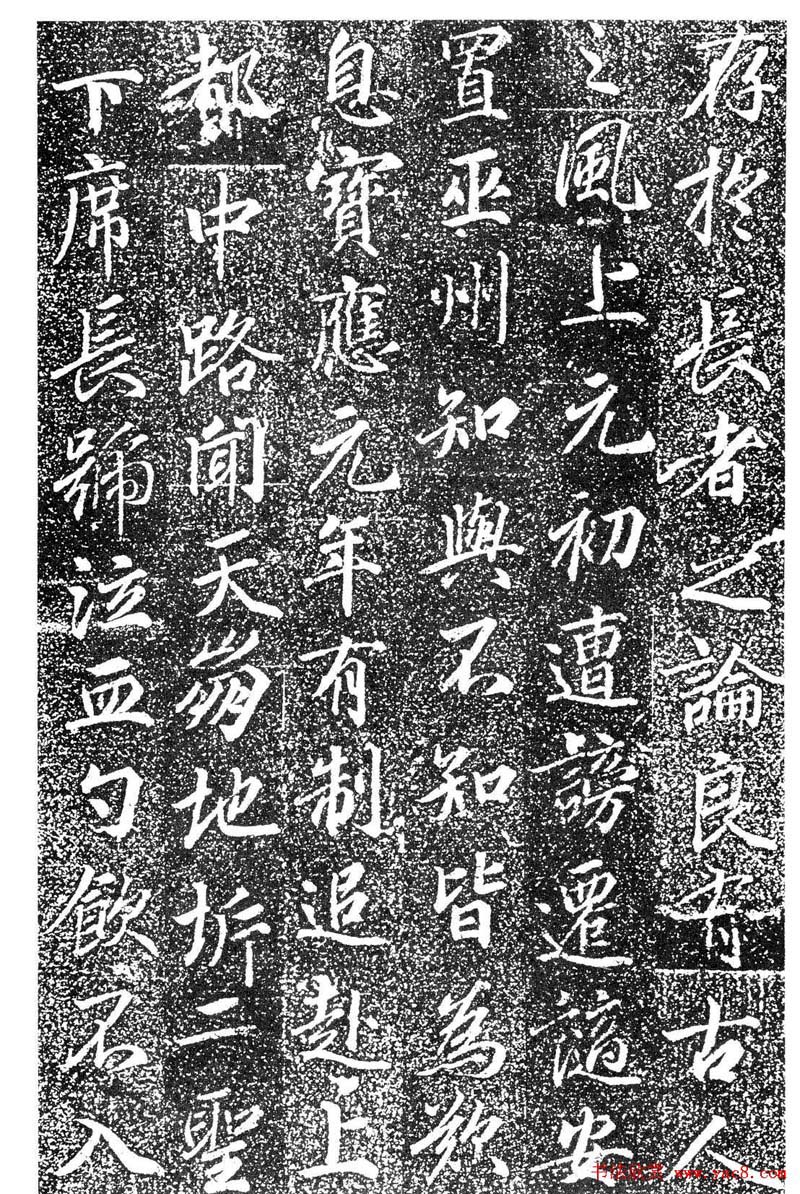 存於長者之論良有古人
之風上元初遭謗遷謫安
置巫州知與不知皆為歎
息寶應元年有制追赴上
都中路聞天崩地坼二聖
下席長號泣血勺飲不入
书法欣赏 www.yac8.com